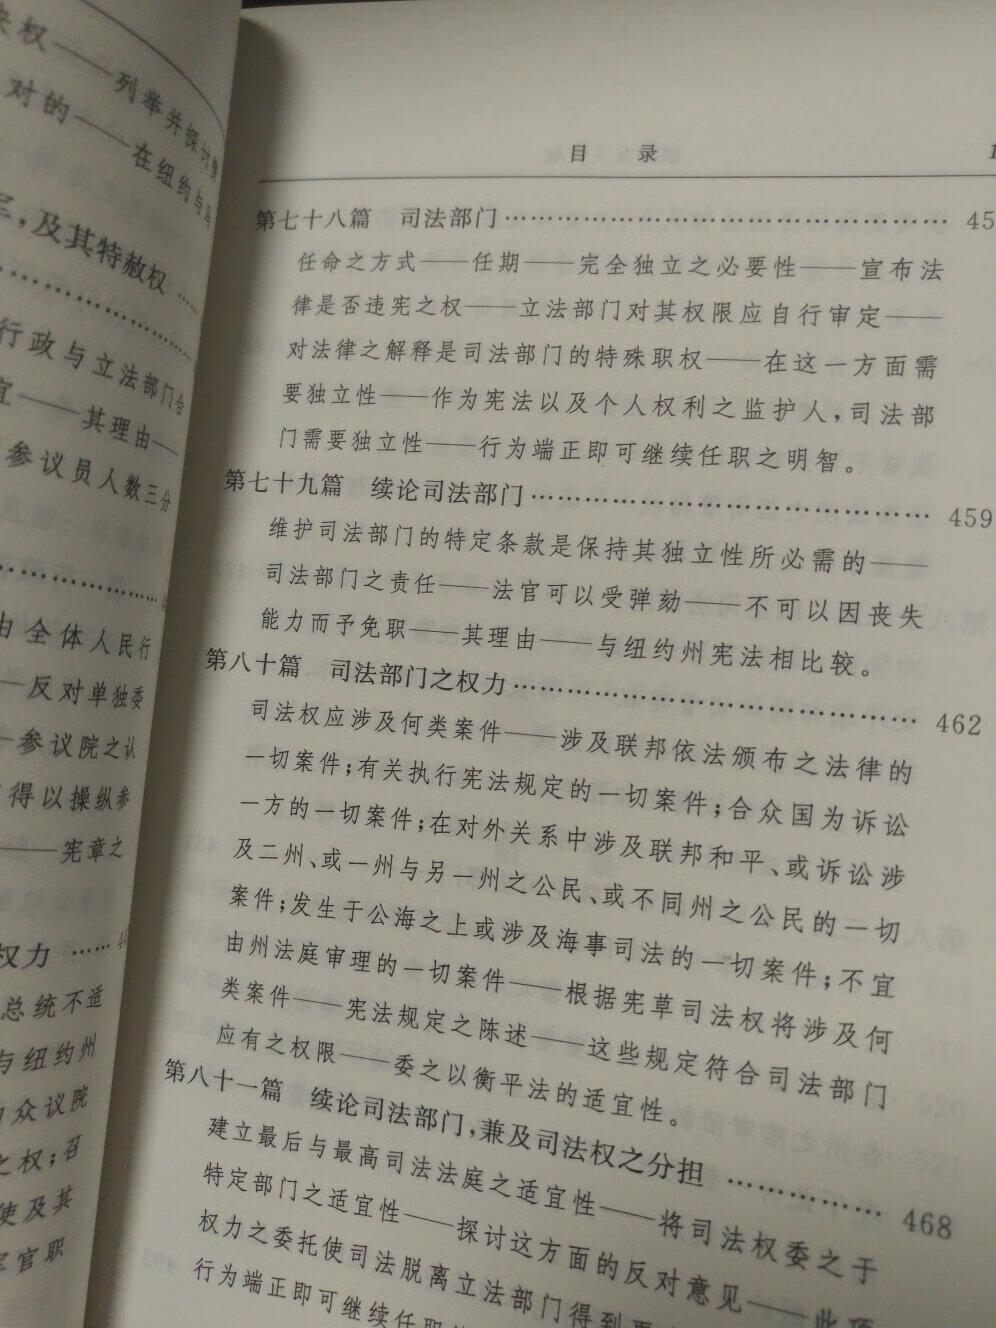 权——列举并探讨
对的——在纽约与
,及其特赦权……
行政与立法部门合
宜——其理由——
参议员人数三分
由全体人民行
—反对单独委
—参议院之认
得以操纵参
——宪章之
权力……
总统不适
与纽约州
众议院
之权;召
使及其
官职
目 录
第七十八篇 司法部门…………………………………………… 45
任命之方式——任期——完全独立之必要性——宣布法
律是否违宪之权——立法部门对其权限应自行审定——
对法律之解释是司法部门的特殊职权——在这一方面需
要独立性——作为宪法以及个人权利之监护人,司法部
门需要独立性——行为端正即可继续任职之明智。
第七十九篇 续论司法部门……………………………………… 459
维护司法部门的特定条款是保持其独立性所必需的——
司法部门之责任——法官可以受弹劾——不可以因丧失
能力而予免职——其理由——与纽约州宪法相比较。
第八十篇 司法部门之权力……………………………………… 462
司法权应涉及何类案件——涉及联邦依法颁布之法律的
一切案件;有关执行宪法规定的一切案件;合众国为诉讼
一方的一切案件;在对外关系中涉及联邦和平、或诉讼涉
及二州、或一州与另一州之公民、或不同州之公民的一切
案件;发生于公海之上或涉及海事司法的一切案件;不宜
由州法庭审理的一切案件——根据宪草司法权将涉及何
类案件——宪法规定之陈述——这些规定符合司法部门
应有之权限——委之以衡平法的适宜性。
第八十一篇 续论司法部门,兼及司法权之分担……………… 468
建立最后与最高司法法庭之适宜性——将司法权委之于
特定部门之适宜性——探讨这方面的反对意见——此项
权力之委托使司法脱离立法部门得到更
行为端正即可继续任职